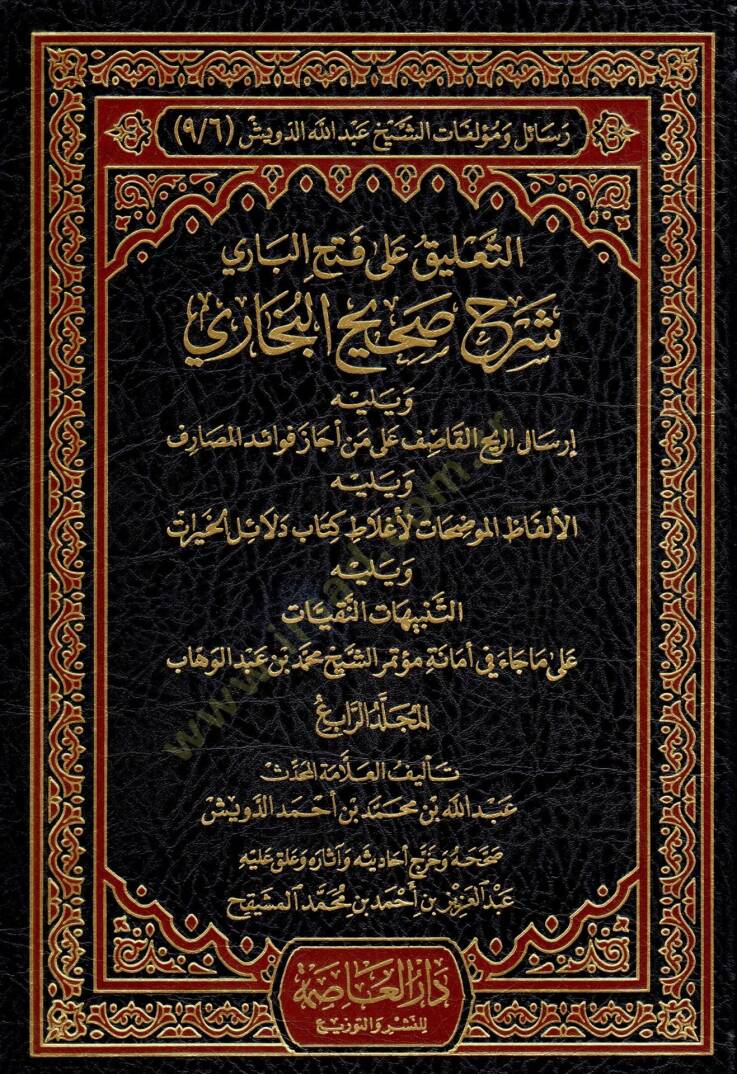 رَسَائل وَمُؤلفَات الشَّيْخ عَبْد اللَّه الدّويشْ (٩/٦)
التَّعْليقُ عَلى فَتح البَاري
شَرْح صَحِيح البُخَاري
وَيَليْه
إرسَال الريح القَاصِف عَلى مَن أجَازَ فوائد المَصَارِف
وَيَليْه
الألفَاظ الموضِحَات لأغلَاطِ كِتَاب دَلَائل الخَيرات
وَيَليْه
التَّنبيهَات النَّقيَّات
عَلى مَا جَاءَ في أمَانَة مؤتمَر الشَّيْخ محمَّد بْن عَبْد الوَهاب
المُجَلَّدُ الرَّابِعُ
تَأليفُ العَلَّامَة المُحَدِّث
عَبْد اللَّه بْن محمَّد بْن أحْمَد الدّويشْ
صَحَّحَهُ وَخَرَّج أحَاديثه وَآثاره وَعَلق عَليْه
عَبْد العَزيْز بن أحْمَد بن مُحمَّد المشَيقِح
دَارُ العَاصِمَة
للنَشْر وَالتَوزيْع
www.ilmad.com.tr